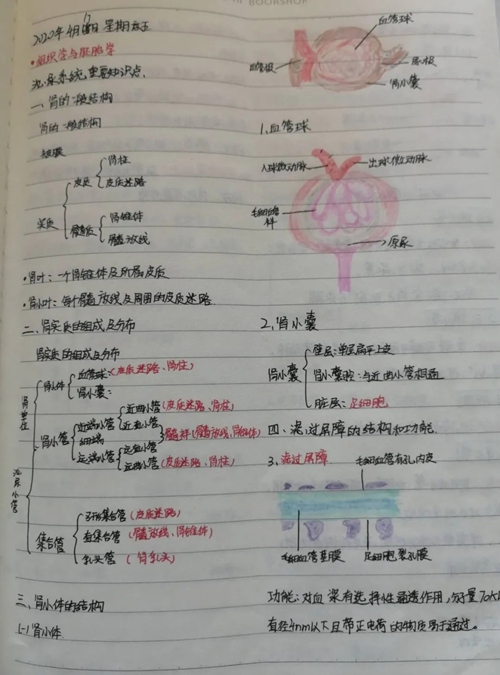 BOOKSHOP
2020年4月17日 星期五
•组织学与胚胎学
泌尿系统,重要知识点.
一、肾的一般结构
肾的一般结构
被膜
实质
皮质
肾柱
皮质迷路
髓质
肾锥体
髓放线
•肾叶:一个肾锥体及所属皮质
•肾小叶:每个髓放线及周围的皮质迷路
二、肾实质的组成及分布
肾实质的组成及分布
泌尿小管
肾单位
肾小体
血管球:(皮质迷路、肾柱)
肾小囊:
肾小管
近端小管
近曲小管(皮质迷路、肾柱)
近直小管
细段
髓袢(髓放线、肾锥体)
远端小管
远直小管
远曲小管(皮质迷路、肾柱)
集合管
弓形集合管(皮质迷路)
直集合管(髓放线、肾锥体)
乳头管(肾乳头)
三、肾小体的结构
肾小体
血管球
血管极
尿极
肾小囊
1.血管球
入球微动脉
出球微动脉
毛细血管
原尿
2.肾小囊
肾小囊
壁层:单层扁平上皮
肾小囊腔:与近曲小管相通
脏层:足细胞
四、滤过屏障的结构和功能
3.滤过屏障
毛细血管有孔内皮
毛细血管基膜
足细胞裂孔膜
功能:对血浆有选择性通透作用,分子量70k
直径4nm以下且带正电荷的物质易于通过.